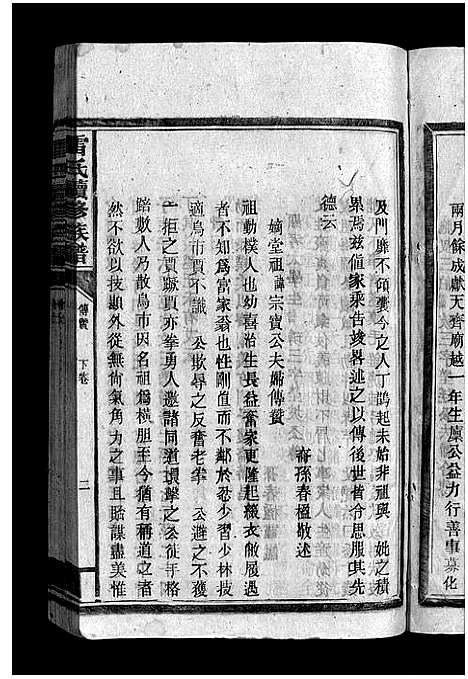 兩月餘成獻天齊廟越一年生廩公益力行善事募化
及門靡不頌襄今之人丁鵲起未始非祖與　妣之積
累焉茲值家乘告竣畧述之以傳後世俾令思服其先
德云
　　　　　　　　　　　　　　　　嗣孫春楹敬述
　嫡堂祖諱宗寶公夫婦傳贊
祖勤樸人也幼喜治生長益奮家更隆起糗衣儉履遇
者不知為富家翁也性剛值而不鄰於忍少習少林技
適鳥市賈不識　公欺辱之反奮老拳　公避之不獲
一拒之賈蹶賈亦拳勇人邀諸同道環擊之公徒手格
踣數人乃散鳥市因名祖為橫胆至今猶有稱道之者
然不欲以技顯外從無尙氣角力之事且貽謀盡美惟
雷氏續修族譜
傳贊
下卷
二